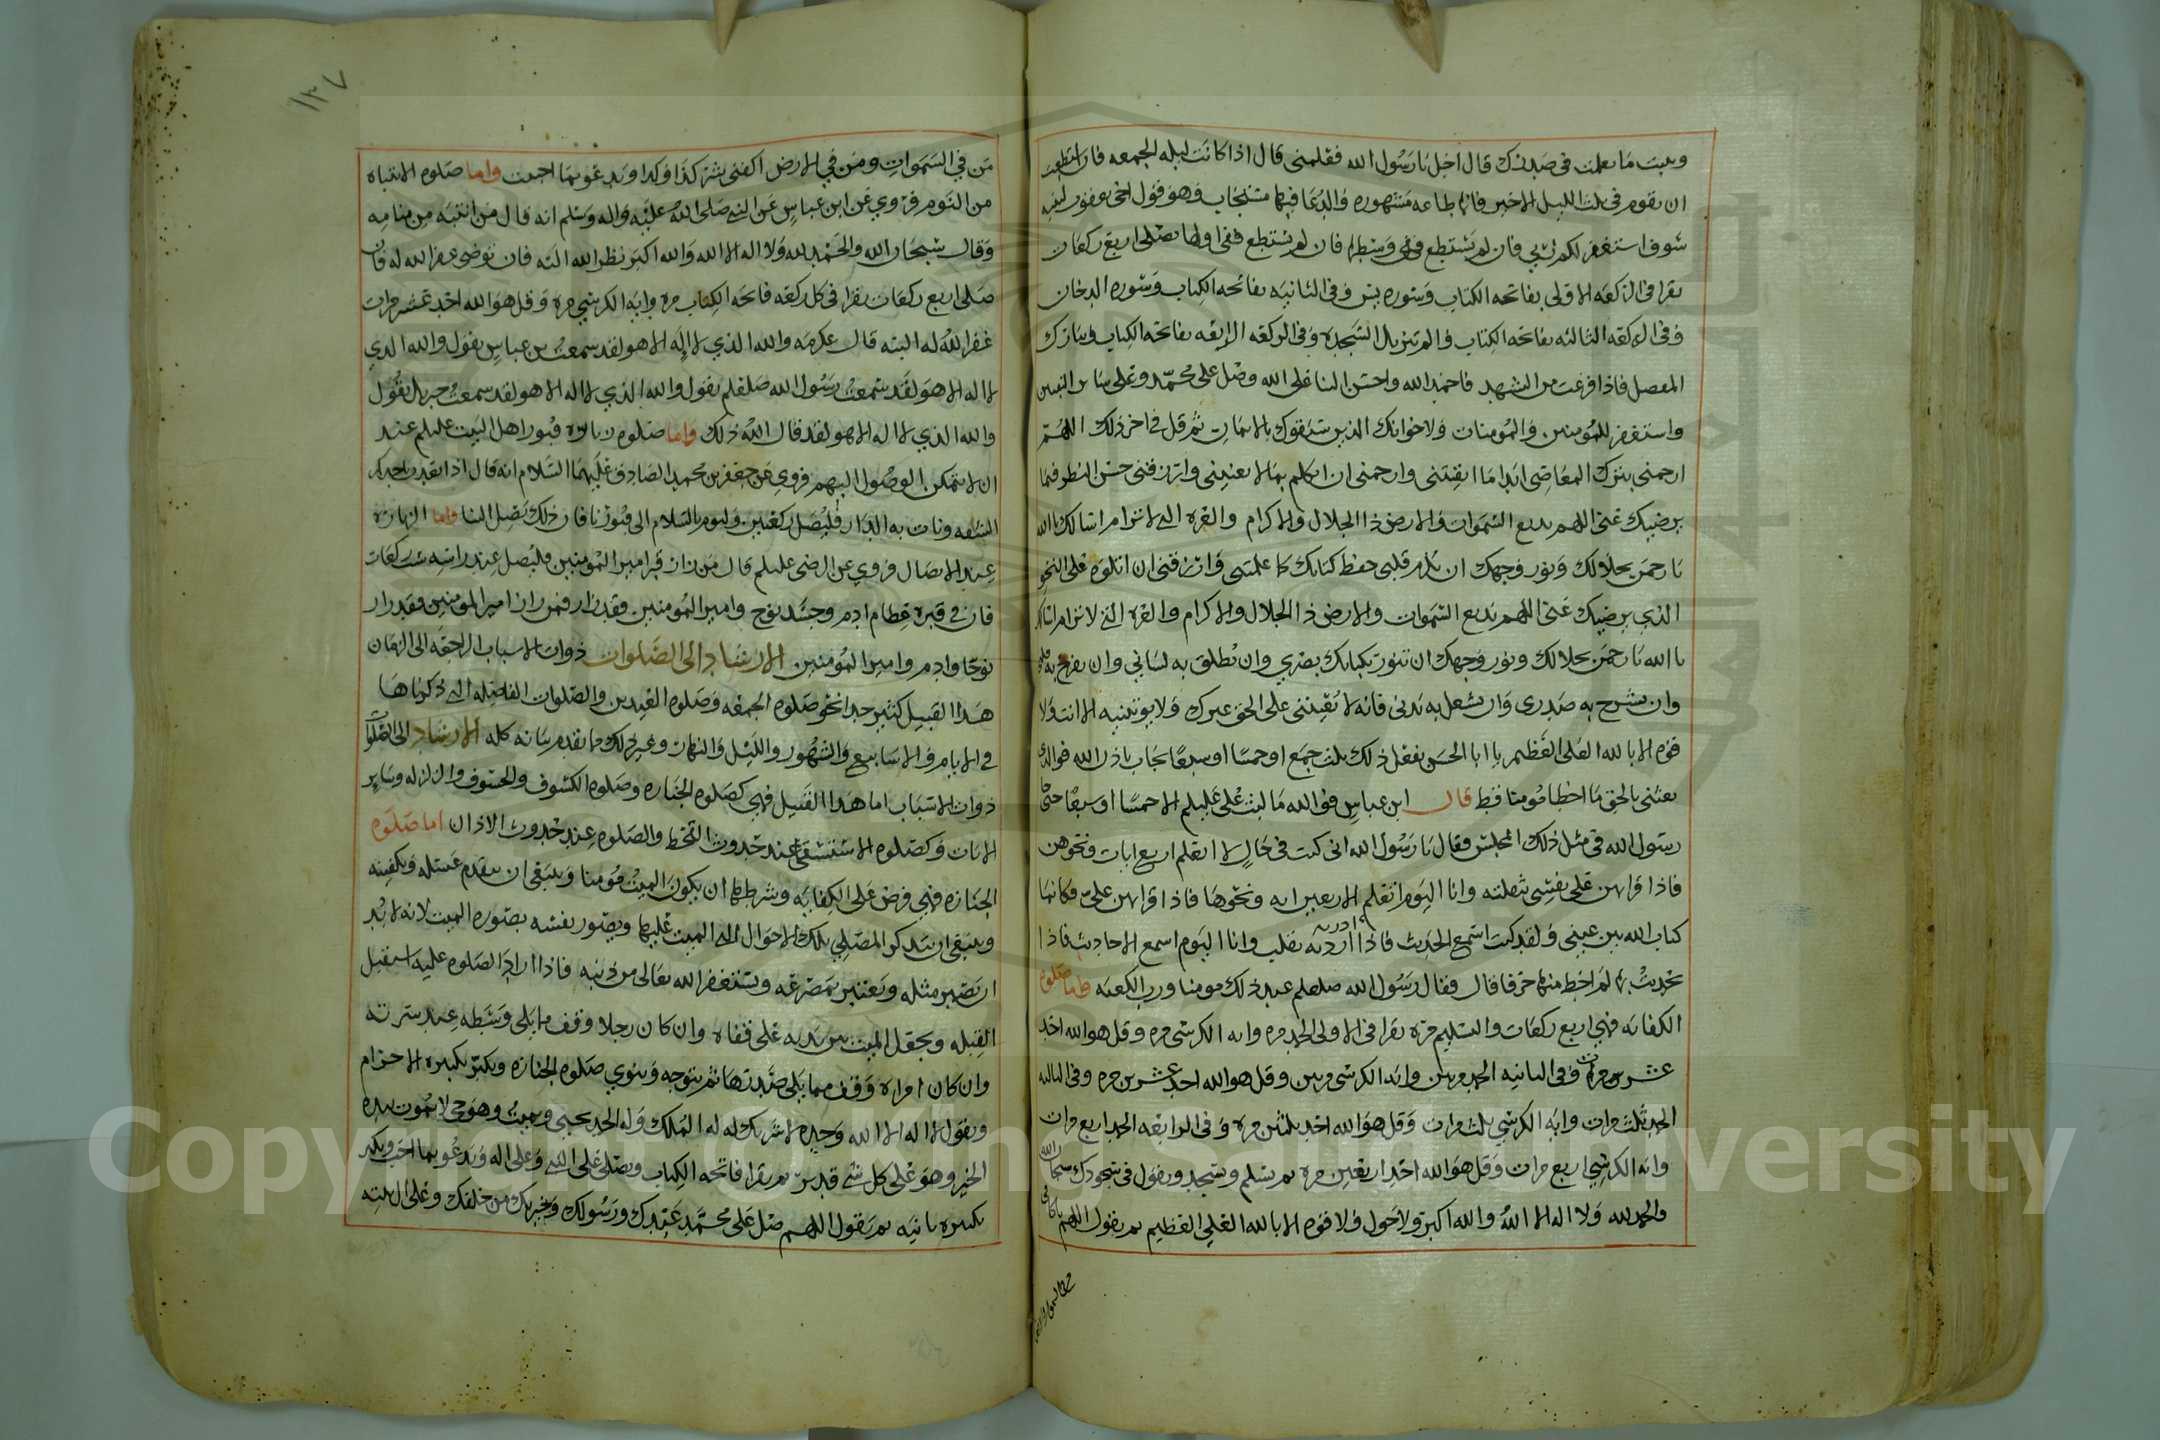 ويثبت ما تعلمت في صدرك قال اجل يا رسول الله فعلمني قال اذا كانت ليله الجمعه فان استطعت
ان تقوم في ثلث الليل الاخير فانها ساعه مشهوره والدعا فيها مستجاب وهو قول اخي يعقوب لبنيه
سوف استغفر لكم ربي فان لم تستطع ففي وسطها فان لم تستطع ففي اولها تصلي اربع ركعات
تقرا في الركعه الاولى بفاتحه الكتاب وسوره يس وفي الثانيه بفاتحه الكتاب وسوره الدخان
وفي الركعه الثالثه بفاتحه الكتاب والم تنزيل السجده وفي الركعه الرابعه بفاتحه الكتاب وتبارك
المفصل فاذا فرغت من التشهد فاحمد الله واحسن الثنا على الله وصل على محمد وعلى سائر النبيين
واستغفر للمومنين والمومنات ولاخوانك الذين سبقوك بالايمان ثم قل في اخر ذلك اللهم
ارحمني بترك المعاصي ابدا ما ابقيتني وارحمني ان اتكلم بما لا يعنيني وارزقني حسن النظر فيما
يرضيك عني اللهم بديع السموات والارض ذا الجلال والاكرام والعزه التي لا ترام اسالك يا الله
يا رحمن بجلالك ونور وجهك ان تلزم قلبي حفظ كتابك كما علمتني وارزقني ان اتلوه على النحو
الذي يرضيك عني اللهم بديع السموات والارض ذا الجلال والاكرام والعزه التي لا ترام اسالك
يا الله يا رحمن بجلالك ونور وجهك ان تنور بكتابك بصري وان تطلق به لساني وان تفرج به قلبي
وان تشرح به صدري وان تشغل به بدني فانه لا يعينني على الحق غيرك ولا يوتينيه الا انت ولا
قوه الا بالله العلي العظيم يا ابا الحسن تفعل ذلك ثلث جمع او خمسا او سبعا تجاب باذن الله فوالذي
بعثني بالحق ما اخطا مومنا قط قال ابن عباس فوالله ما لبث علي عليلم الا خمسا او سبعا حتى جا
رسول الله في مثل ذلك المجلس فقال يا رسول الله اني كنت في خال لا اتعلم اربع ايات ونحوهن
فاذا قراتهن على نفسي تفلتن وانا اليوم اتعلم الاربعين ايه ونحوها فاذا قراتهن علي فكانما
كتاب الله بين عيني ولقد كنت اسمع الحديث فاذا اردته تفلت وانا اليوم اسمع الاحاديث فاذا
تحدثت بها لم اخط منها حرفا قال فقال رسول الله صلعلم عند ذلك مومنا ورب الكعبه واما صلوه
الكفايه فهي اربع ركعات والتسليم مره تقرا في الاولى الحمد مره وايه الكرسي مره وقل هو الله احد
عشر مرات وفي الثانيه الحمد مرتين وايه الكرسي مرتين وقل هو الله احد عشرين مره وفي الثالثه
الحمد ثلث مرات وايه الكرسي ثلث مرات وقل هو الله احد ثلثين مره وفي الرابعه الحمد اربع مرات
وايه الكرسي اربع مرات وقل هو الله احد اربعين مره ثم تسلم وتسجد وتقول في سجودك سبحان الله
والحمد لله ولا اله الا الله والله اكبر ولا حول ولا قوه الا بالله العلي العظيم ثم يقول اللهم يا كافي
١٣٧
من في السموات ومن في الارض اكفني شر كذا وكذا ويدعو بما احببت واما صلوه الانتباه
من النوم فروي عن ابن عباس عن النبي صلى الله عليه واله وسلم انه قال من انتبه من منامه
وقال سبحان الله والحمد لله ولا اله الا الله والله اكبر نظر الله اليه فان توضى غفر الله له فان
صلى اربع ركعات يقرا في كل ركعه فاتحه الكتاب مره وايه الكرسي مره وقل هو الله احد عشر مرات
غفر الله له البته قال عكرمه والله الذي لا اله الا هو لقد سمعت بن عباس يقول والله الذي
لا اله الا هو لقد سمعت رسول الله صلعلم يقول والله الذي لا اله الا هو لقد سمعت جبريل يقول
والله الذي لا اله الا هو لقد قال الله ذلك واما صلوه زياره قبور اهل البيت عليلم عند
ان لا يتمكن الوصول اليهم فروي عن جعفر بن محمد الصادق عليهما السلام انه قال اذا بعدت باحدكم
الشقه ونات به الدار فليصل ركعتين وليوم بالسلام الى قبورنا فان ذلك يصل الينا واما الزياره
عند الاتصال فروي عن الرضى عليلم قال من زار قبر امير المومنين فليصل عند راسه ست ركعات
فان في قبره عظام ادم وجسد نوح وامير المومنين فقد زار فمن زار امير المومنين فقد زار
نوحا وادم وامير المومنين الارشاد الى الصلوات ذوات الاسباب الراجعه الى الزمان
هذا القبيل كثير جدا نحو صلوه الجمعه وصلوه العيدين والصلوات الفاضله التي ذكرناها
في الايام والاسابيع والشهور والليل والنهار وغير ذلك ما تقدم بيانه كله الارشاد الى الصلوات
ذوات الاسباب اما هذا القبيل فهي كصلوه الجنازه وصلوه الكسوف والخسوف والزلزله وساير
الايات وكصلوه الاستسقا عند حدوث القحط والصلوه عند حدوث الاذان اما صلوه
الجنازه فهي فرض على الكفايه وشرطها ان يكون الميت مومنا وينبغي ان يتقدم غسله وتكفينه
وينبغي ان يتذكر المصلي تلك الاحوال التي الميت عليها ويصور نفسه بصوره الميت لانه لابد
ان يصير مثله ويعتبر بمصرعه ويستغفر الله تعالى من ذنبه فاذا اراد الصلوه عليه استقبل
القبله ويجعل الميت بين يديه على قفاه وان كان رجلا وقف مما يلي وسطه عند سرته
وان كان امراه وقف مما يلي صدرها ثم يتوجه وينوي صلوه الجنازه ويكبر تكبيره الاحرام
ويقول لا اله الا الله وحده لا شريك له له الملك وله الحمد يحيي ويميت وهو حي لا يموت بيده
الخير وهو على كل شي قدير ثم يقرا فاتحه الكتاب ويصلي على النبي وعلى اله ويدعو بما احب ويكبر
تكبيره ثانيه ثم يقول اللهم صل على محمد عبدك ورسولك وخيرتك من خلقك وعلى ال بيته
Copyright © King Saud University